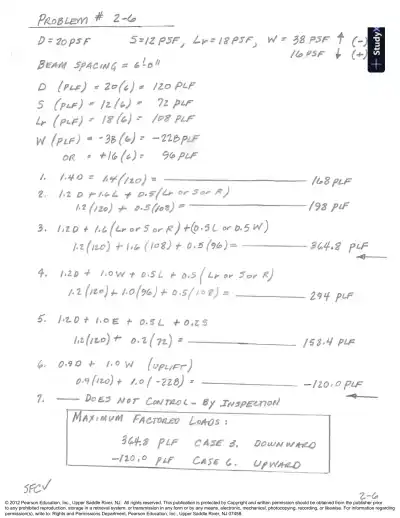 PROBLEM # 2-6
D = 20 PSF S = 12 PSF, Lr = 18 PSF, W = 38 PSF ↑ (-)
16 PSF ↓ (+)
+ StudyX
BEAM SPACING = 6'-0"
D (PLF) = 20(6) = 120 PLF
S (PLF) = 12(6) = 72 PLF
Lr (PLF) = 18(6) = 108 PLF
W (PLF) = -38(6) = -228 PLF
OR = +16(6) = 96 PLF
1. 1.4D = 1.4(120) = 168 PLF
2. 1.2 D + 1.6L + 0.5(Lr or S or R)
1.2(120) + 0.5(108) = 198 PLF
3. 1.2D + 1.6(Lr or S or R) + (0.5L or 0.5W)
1.2(120) + 1.6(108) + 0.5(96) = 364.8 PLF
4. 1.2D + 1.0W + 0.5L + 0.5(Lr or S or R)
1.2(120) + 1.0(96) + 0.5(108) = 294 PLF
5. 1.2D + 1.0E + 0.5L + 0.2S
1.2(120) + 0.2(72) = 158.4 PLF
6. 0.9D + 1.0W (UPLIFT)
0.9(120) + 1.0(-228) = -120.0 PLF
7. DOES NOT CONTROL - BY INSPECTION
MAXIMUM FACTORED LOADS:
364.8 PLF CASE 3. DOWNWARD
-120.0 PLF CASE 6. UPWARD
SFC✓
2-6
© 2012 Pearson Education, Inc., Upper Saddle River, NJ. All rights reserved. This publication is protected by Copyright and written permission should be obtained from the publisher prior
to any prohibited reproduction, storage in a retrieval system, or transmission in any form or by any means, electronic, mechanical, photocopying, recording, or likewise. For information regarding
permission(s), write to: Rights and Permissions Department, Pearson Education, Inc., Upper Saddle River, NJ 07458.